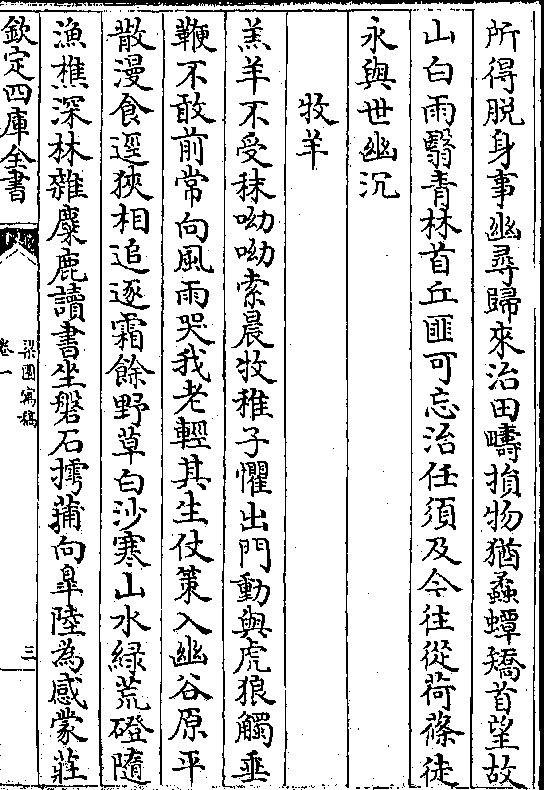 所得脱身事幽尋歸來治田疇損物猶蟸蟫矯首望故
山白雨翳青林首丘匪可忘治任須及今往從荷蓧徒
永與世幽沉
牧羊
羔羊不受秣呦呦索晨牧稚子懼出門動與虎狼觸垂
鞭不敢前常向風雨哭我老輕其生仗策入幽谷原平
散漫食逕狹相追逐霜餘野草白沙寒山水緑荒磴隨
漁樵深林雜麋鹿讀書坐磐石摴蒱向臯陸為感蒙莊
欽定四庫全書
梁園寓稿
卷一
三